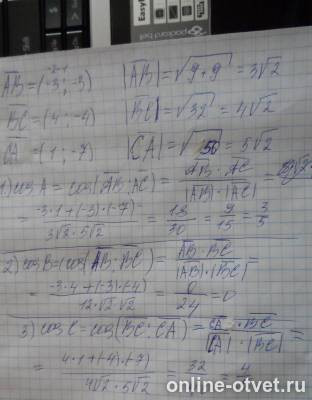 Easy
packard bell
-2-1
AB = (-3; -3) |AB| = √9+9 = 3√2
BC = (4; -4) |BC| = √32 = 4√2
CA = (1; -7) |CA| = √50 = 5√2
1) cos A = cos(AB·AC) = AB·AC / |AB|·|AC| =
= -3·1+(-3)·(-7) / 3√2·5√2 = 18/30 = 9/15 = 3/5
2) cos B = (cos(AB·BC) = AB·BC / |AB|·|BC| =
= -3·4+(-3)·(-4) / 12·√2·√2 = 0/24 = 0
3) cos C = cos(BC·CA) = CA·BC / |CA|·|BC| =
= 4·1+(-4)·(-7) / 4√2·5√2 = 32 / = 4 /
online-otvet.ru